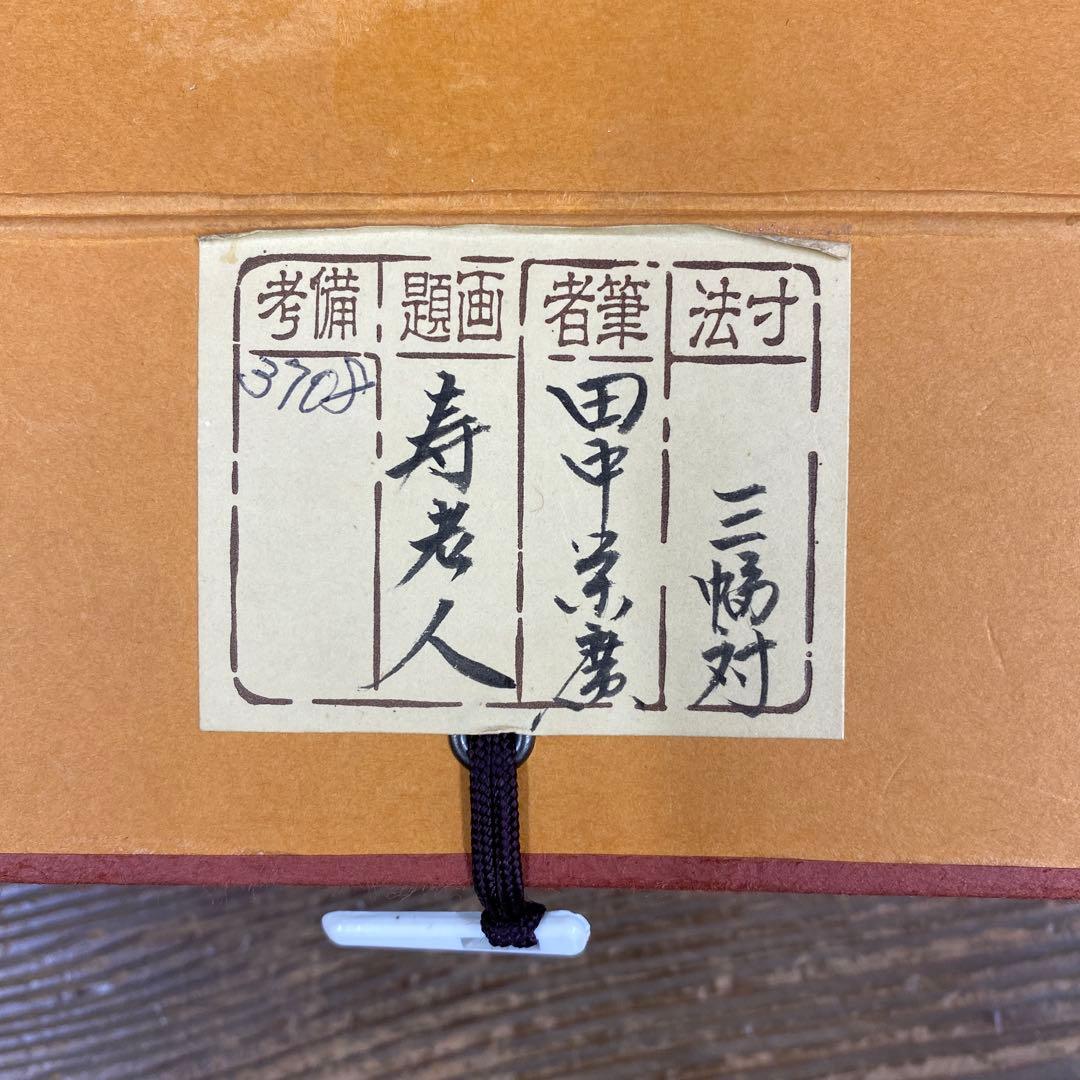 寸法
三幅対
筆者
田中栄広
画題
寿老人
備考
3708